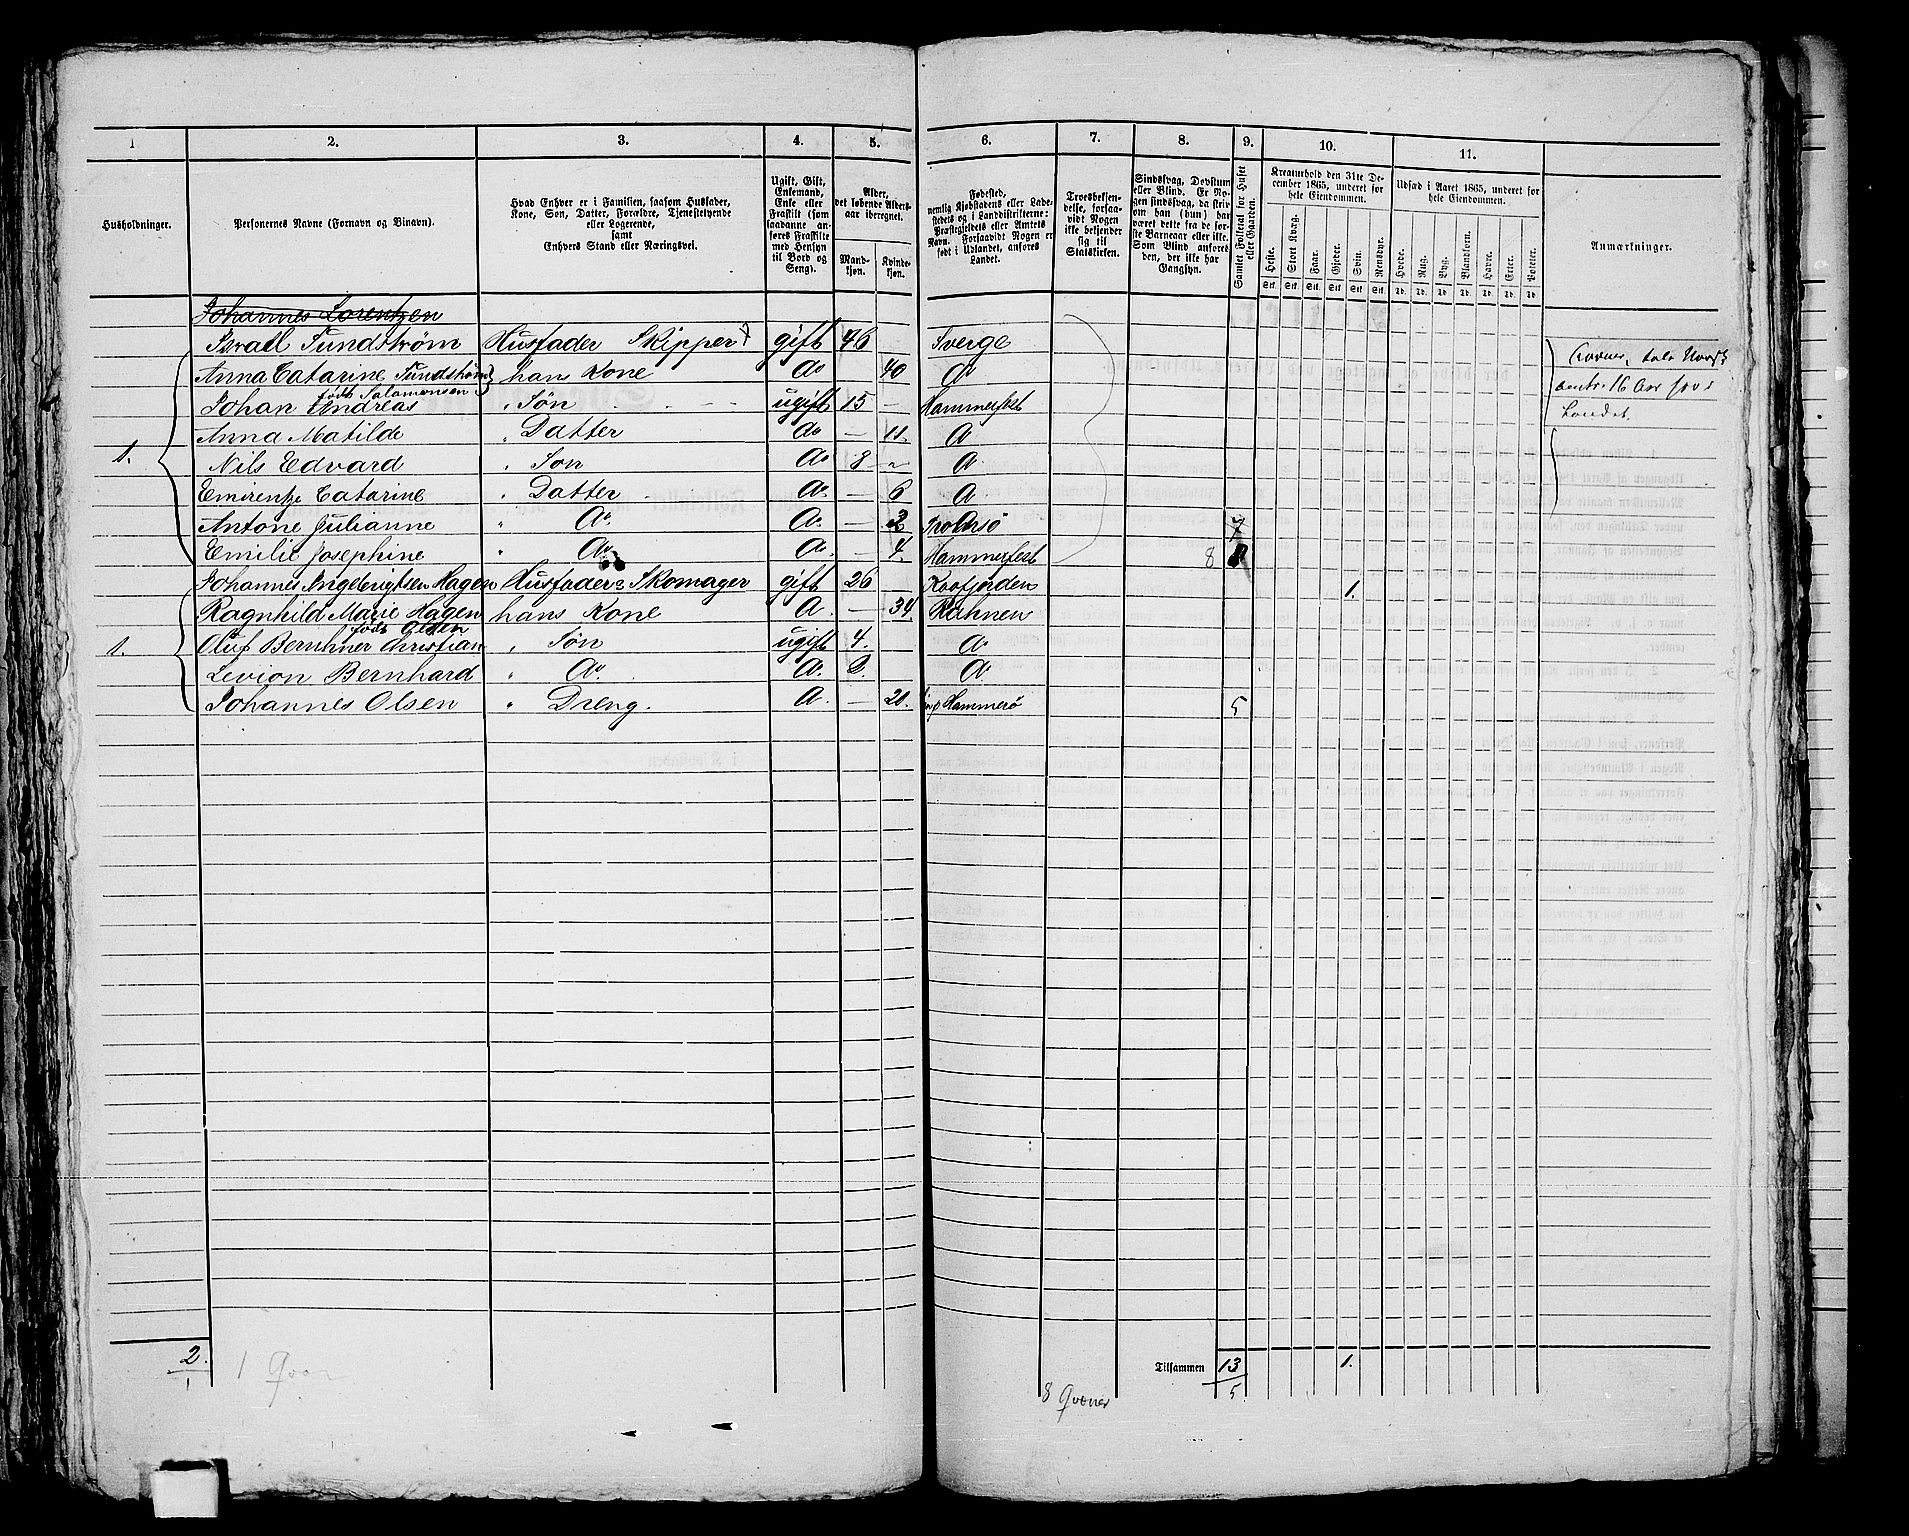 1 2. 3. 4. 5. 6. 7. 8. 9. 10. 11.
Husholdninger.
Personernes Navne (Fornavn og Binavn).
Hvad Enhver er i Familien, saasom Husfader,
Kone, Søn, Datter, Forældre, Tjenestetyende
eller Logerende,
samt
Enhvers Stand eller Næringsvei.
Ugift, Gift,
Enkemand,
Enke eller
Fraskilt (som
saadanne an-
føres Fraskilte
med Hensyn
til Bord og
Seng).
Alder,
det løbende Alders-
aar iberegnet.
Mand-
kjøn.
Kvinde-
kjøn.
Fødested,
nemlig Kjøbstadens eller Lade-
stedets og i Landdistrikterne:
Præstegjeldets eller Amtets
Navn. Forsaavidt Nogen er
født i Udlandet, anføres
Landet.
Troesbekjen-
delse, forsaa-
vidt Nogen
ikke bekjender
sig til
Statskirken.
Sindssvag, Døvstum
eller Blind. Er No-
gen sindssvag, da skriv
om han (hun) har
været dette fra de før-
ste Barneaar eller ikke.
Som Blind anføres
den, der ikke har
Gangsyn.
Samlet Folketal for Huset
eller Gaarden.
Kreaturhold den 31te De-
cember 1865, underet for
hele Eiendommen.
Heste. Stort Kvæg. Faar. Gjeder. Svin. Rensdyr.
Stk. Stk. Stk. Stk. Stk. Stk.
Udsæd i Aaret 1865, underet for
hele Eiendommen.
Hvede. Rug. Byg. Blandkorn. Havre. Erter. Poteter.
Td. Td. Td. Td. Td. Td. Td.
Anmærkninger.
Johannes Lorentzen
Israel Sundstrøm Husfader Skipper gift 46 Sverge
Anna Catarine Sundstrøm hans Kone Do 40 Do
født Salamonsen
Johan Andreas " Søn ugift 15 — Hammerfest
aentr. 16 Aar
Landet.
Anna Matilde " Datter Do — 11. Do
1. Nils Edvard " Søn Do 8 — Do
Emirentze Catarine " Datter Do — 6 Do
Antone Julianne " Do. Do. — 2 Tromsø 7
Emilie Josephine " Do Do. — 4. Hammerfest 8
Johannes Ingebrigtsen Hagen Husfader Skomager gift 26 Kaafjorden 1.
Ragnhild Marie Hagen hans Kone Do. — 34
født Olsen
1. Oluf Bernhner Christian " Søn ugift 4. Do
Levion Bernhard " Do. Do. 2. Do
Johannes Olsen " Dreng. Do. — 20. Hammerø 5
2. 1 Qvæn
1
Tilsammen 13 1.
5
8 Qvæner